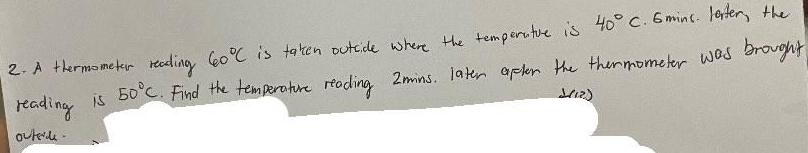 2. A thermometer reading 60°C is taken outside where the temperature is 40°C. 6mins. later, the
reading is 50°C. Find the temperature reading 2mins. later after the thermometer was brought
outside.